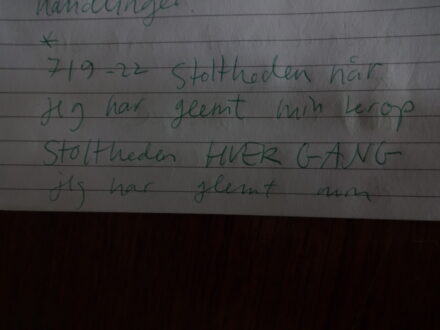 handlinger.
*
7/9-22 Stoltheden når
jeg har glemt min krop
Stoltheden HVER GANG
jeg har glemt min